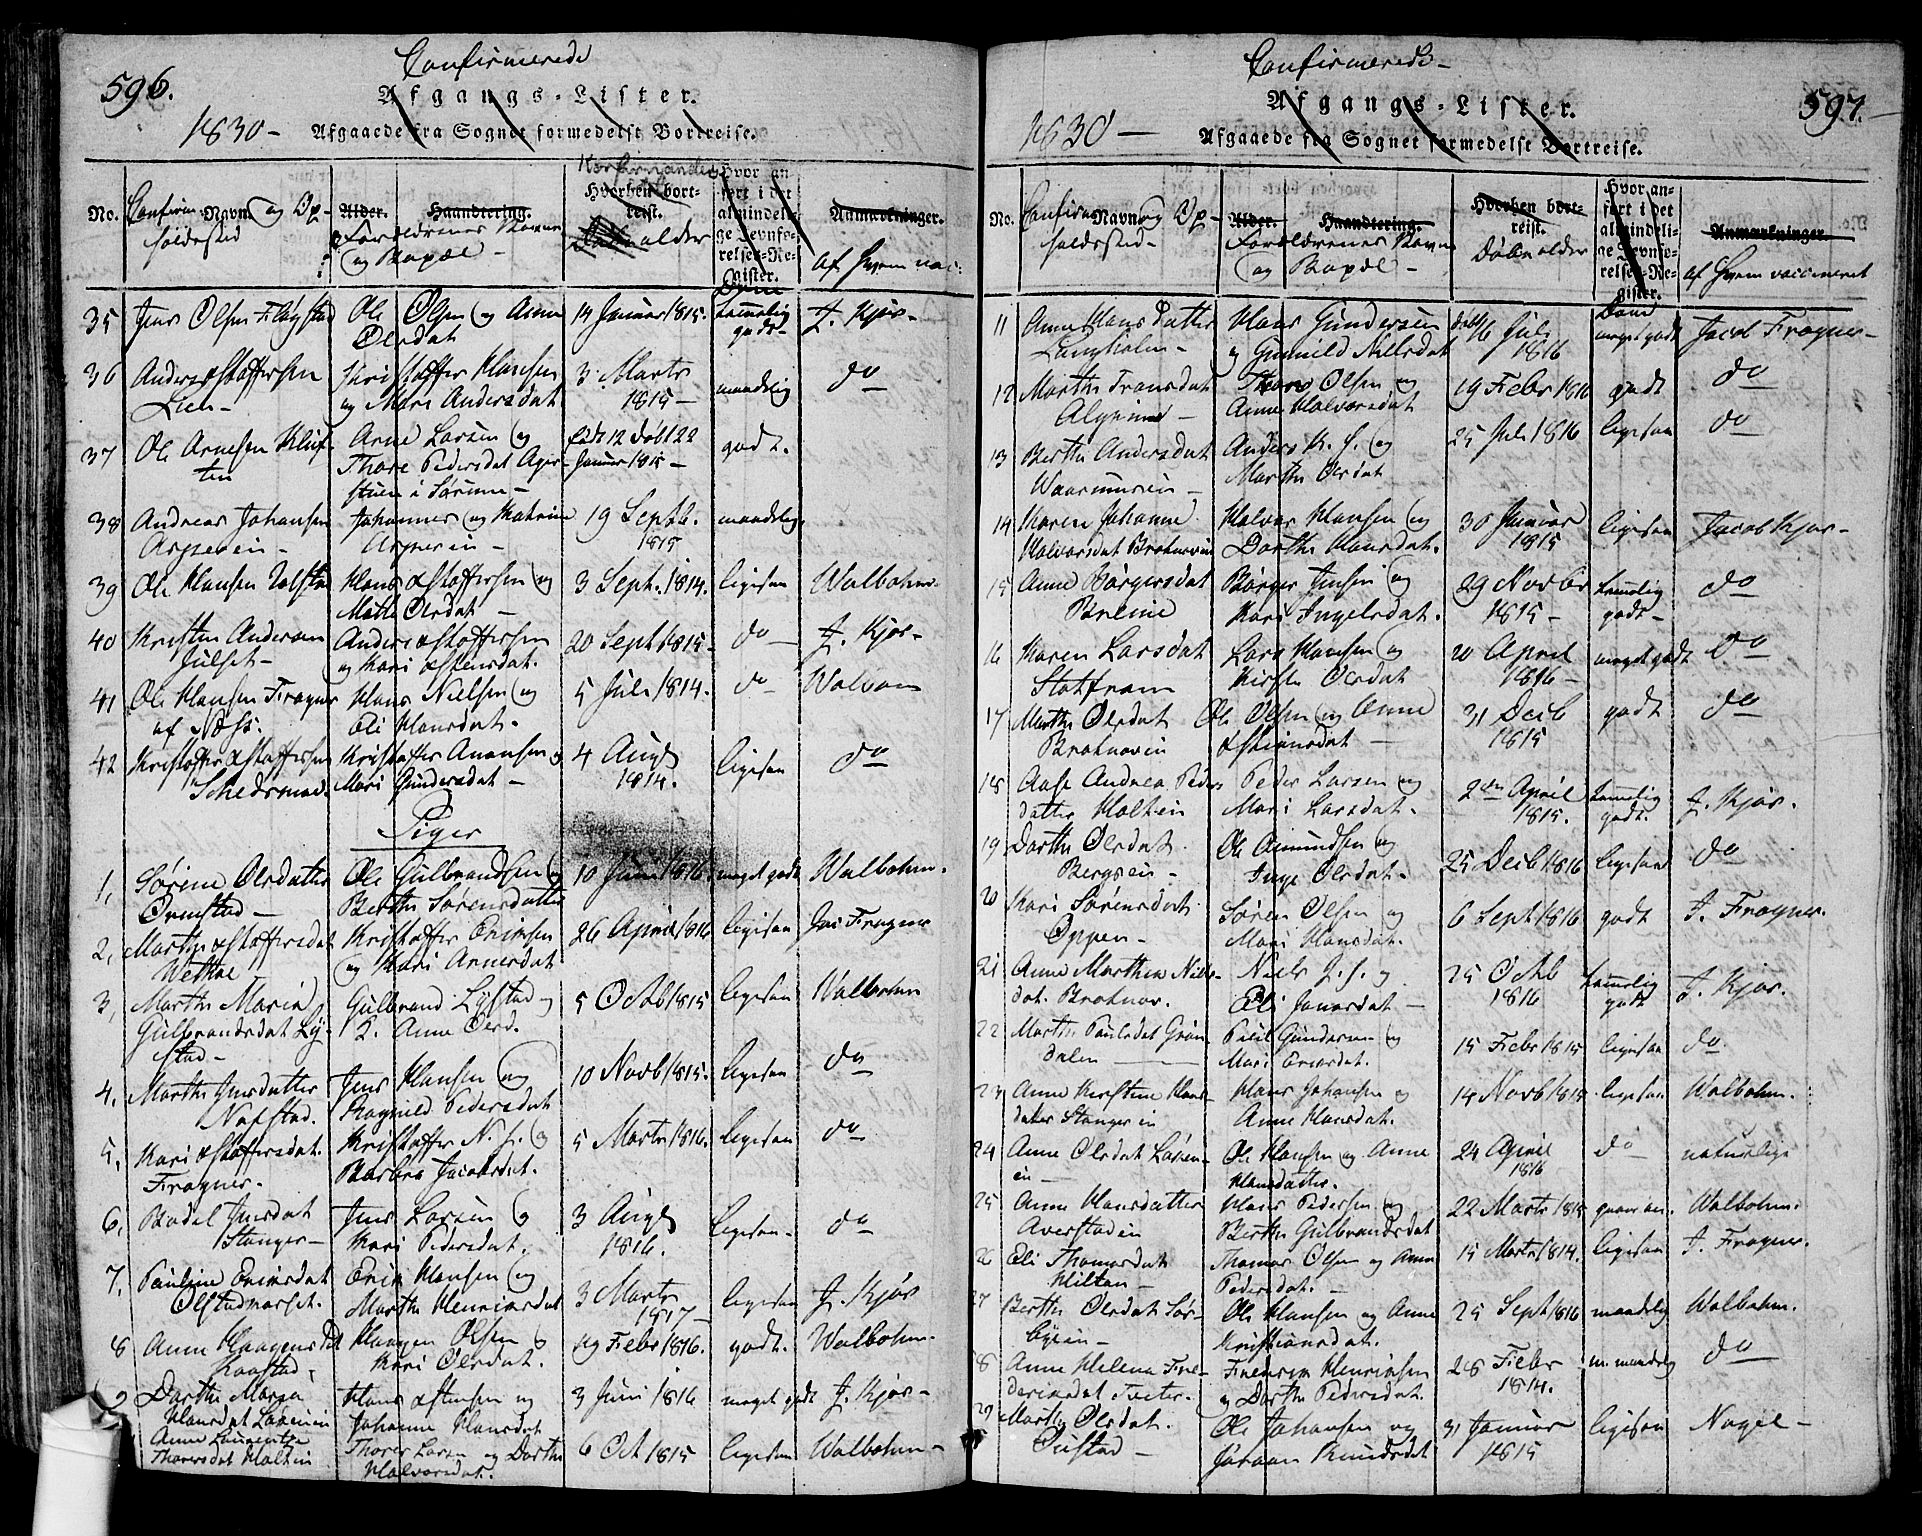 596.
Confirmerede
Afgangs-Lister.
1830-
Afgaaede fra Sognet formedelst Bortreise.
No.
Confirm: Navn og Op-
holdssted
Alder.
Haandtering.
Forældrenes Navne
og Bopæl -
Hvorhen bort-
reist.
alder
Hvor an-
ført i det
almindeli-
ge Jevnfø-
relses-Re-
gister.
Anmærkninger.
af Hvem vac:
35 Jens Olsen Fløgstad
Ole Olsen og Anne
Olsdat
14 Januar 1815.
temmelig
godt-
J. Kjos-
36 Anders Stoffersen
Lien-
Kristoffer Hansen
og Mari Andersdat
3 Marts
1815-
maadelig
do
37 Ole Arnesen Kluf-
ten
Arne Larsen og
Thore Pedersdat Ager-
stuen i Sørum-
født 12 døbt 22
Januar 1815-
godt.
38 Andreas Johansen
Asperein-
Johannes og Kathrine
Asperein-
19 Septb.
1815
maadelig
39 Ole Hansen Ulfstad
Hans Stoffersen og
Mathe Olsdat-
3 Sept. 1814.
ligesaa
Walbohm
40 Kristen Andersen
Julset-
Anders Stoffersen
og Kari Stensdat.
20 Sept 1815-
do
J. Kjos-
41 Ole Hansen Frogner
af Næss.
Hans Nielsen og
Eli Hansdat.
5 Juli 1814.
do
Walbom
42 Kristoffer Stoffersen
Schedsmoe.
Kristoffer Amansen og
Mari Gundersdat-
4 Augs
1814.
ligesaa
do
Piger
1, Sørine Olsdatter
Ormstad-
Ole Gulbrandsen og
Berthe Sørensdatter
10 Juni 1816.
meget godt
Walbohm.
2, Marthe Stoffersdat
Kristoffer Erichsen
og Kari Arnesdat
26 April 1816
ligesaa
Jac Frogner
3, Marthe Maria
Gulbrandsdat Ly-
stad-
Gulbrand Lystad og
K. Anne Olsd.
5 Octb 1815
ligesaa
Walbohm
4, Marthe Jensdatter
Nafstad.
Jens Hansen og
Ragnild Pedersdat
10 Novb 1815.
ligesaa
do
5, Kari Stoffersdat.
Frogner.
Kristoffer N. S. og
Barbra Jacobsdat.
5 Marts 1816.
ligesaa
do
6, Bodel Jensdat
Stanger-
Jens Larsen og
Kari Pedersdat.
3 Augs
1816.
ligesaa-
do
7, Pauline Erichsdat
Olstadnorset.
Erik Hansen og
Marthe Henrichsdat
3 Marts
1817-
ligesaa
J. Kjos
8 Anne Haagensdt
Raastad,
Haagen Olsen og
Kari Olsdat.
19 Febr 1816.
godt.
Walbohm.
9 Dorthe Maria
Hansdat Løkenein
Hans Stensen og
Johanne Hansdat
3 Juni 1816
meget godt
J. Kjos-
Anne Laurentze
Thoresdat Holtein
Thorer Larsen og Dorthe
Halvorsdat.
6 Oct 1815
ligesaa
Walbohm-
597.
Confirmerede-
Afgangs-Lister.
1830-
Afgaaede fra Sognet formedelst Bortreise.
No.
Confirm: Navn og Op-
holdssted-
Alder.
Haandtering.
Forældrenes Navne
og Bopæl-
Hvorhen bort-
reist.
Døbt alder
Hvor an-
ført i det
almindeli-
ge Jevnfø-
relses-Re-
gister.
Anmærkninger.
af Hvem vaccineret
11 Anne Hans datter
Langholm-
Hans Gundersen
og Gunnild Nielsdat
døbt 16 Juli
1816
meget godt
Jacob Frogner-
12 Marthe Fransdat
Thores Olsen og
Anne Halvorsdat
19 Febr 1816
godt
do
13 Berthe Andersdat
Anders K. S. og
Marthe Olsdat
25 Juli 1816
ligesaa
do
14 Karen Johanne
Halvorsdat Brotnovein
Halvor Hansen og
Dorthe Hansdat.
30 Januar
1815
ligesaa
Jacob Kjos-
15 Anne Børgersdat
Breine
Børger Jensen og
Kari Ingelsdat.
29 Novbr
1815-
temmelig
godt-
do
16 Karen Larsdat
Stokfram
Lars Hansen og
Kirsten Olsdat
20 April
1816-
meget godt
do
17 Marthe Olsdat
Brotnovein
Ole Olsen og Anne
Stiansdat-
31 Decb
1815
godt
do
18 Aase Andrea Peders
datter Holtein
Peder Larsen og
Mari Larsdat.
2den April
1815.
temmelig
godt.
J. Kjos.
19 Dorthe Olsdat.
Bergsein-
Ole Amundsen og
Inge Olsdat.
25 Decb 1816
ligesaa
do
20 Kari Sørensdat.
Oppen-
Søren Olsen og
Mari Hansdat.
6 Sept 1816
godt
J. Frogner.
21 Anne Marthea Niels-
dat. Brotnov.
Niels J. S. og
Eli Jonasdat-
25 Octb
1816
temmelig
godt
J. Kjos.
22 Marthe Paulsdat Grøn-
dalen
Paul Gundersen og
Mari Ericsdat.
15 Febr 1815
ligesaa
do
23 Anne Kirstine Hans-
datter Stangerein
Hans Johansen og
Anne Hansdat.
14 Novb 1815
ligesaa
Walbohm.
24 Anne Olsdat Løken-
ein-
Ole Hansen og Anne
Hansdatter.
24 April
1816
do
naturlige
25 Anne Hansdatter
Averstadein
Hans Pedersen og
Berthe Gulbrandsdat
22 Marts 1815
Walbohm.
26 Eli Thomasdat
Hilton-
Thomas Olsen og Anne
Pedersdat.
15 Marts 1814.
ligesaa
J. Frogner.
27 Berthe Olsdat Sør-
byein-
Ole Hansen og Anne
Kristiansdat.
25 Sept 1816
maadelig
Walbohm.
28 Anne Helena Fre-
dericsdat Teiter.
Frederik Henrichsen
og Dorthe Pedersdat
28 Febr
1814.
m. maadelig
do
29 Marthe Olsdat.
Ole Johansen og
Jøraan Knudsdat
31 Januar
1815
ligesaa
Nagel-